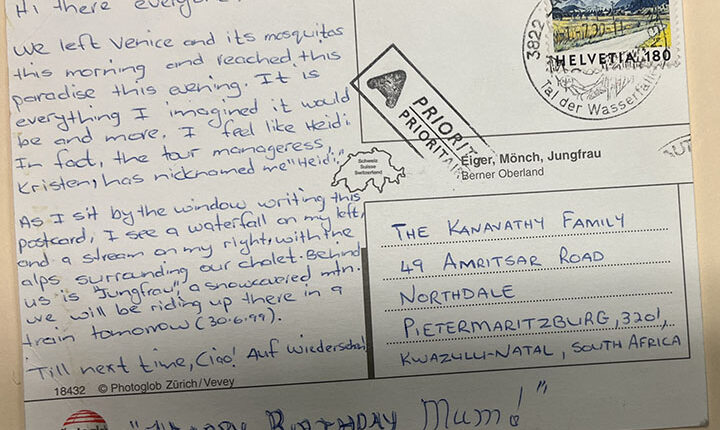 Hi there
We left Venice and its mosquitos
this morning and reached this
paradise this evening. It is
everything I imagined it would
be and more. I feel like Heidi
In fact, the tour manageress,
Kristen, has nicknamed me "Heidi."
As I sit by the window writing this
postcard, I see a waterfall on my left,
and a stream on my right, with the
alps surrounding our chalet. Behind
us is "Jungfrau", a snowcovered mtn.
We will be riding up there in a
train tomorrow (30.6.99).
Till next time, Ciao! Auf wiedersehn
18432 © Photoglob Zürich/Vevey
"HAPPY BIRTHDAY MUM!"
PRIORITY
PRIORITAIRE
3822
HELVETIA 180
Tal der Wasserfälle
Schweiz
Suisse
Switzerland
Eiger, Mönch, Jungfrau
Berner Oberland
THE KANAVATHY FAMILY
49 AMRITSAR ROAD
NORTHDALE
PIETERMARITZBURG, 3201,
KWAZULU-NATAL, SOUTH AFRICA